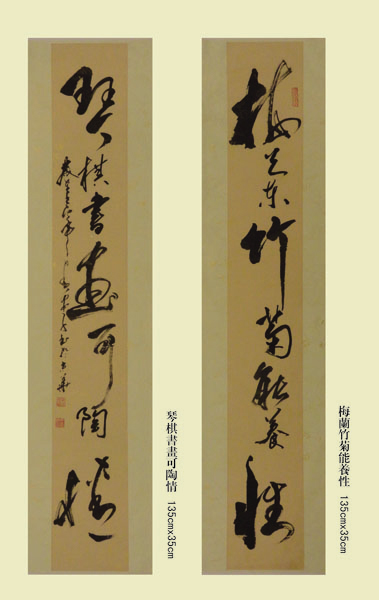 梅蘭竹菊能養性
梅蘭竹菊能養性 135cmx35cm
琴棋書畫可陶情
琴棋書畫可陶情 135cmx35cm